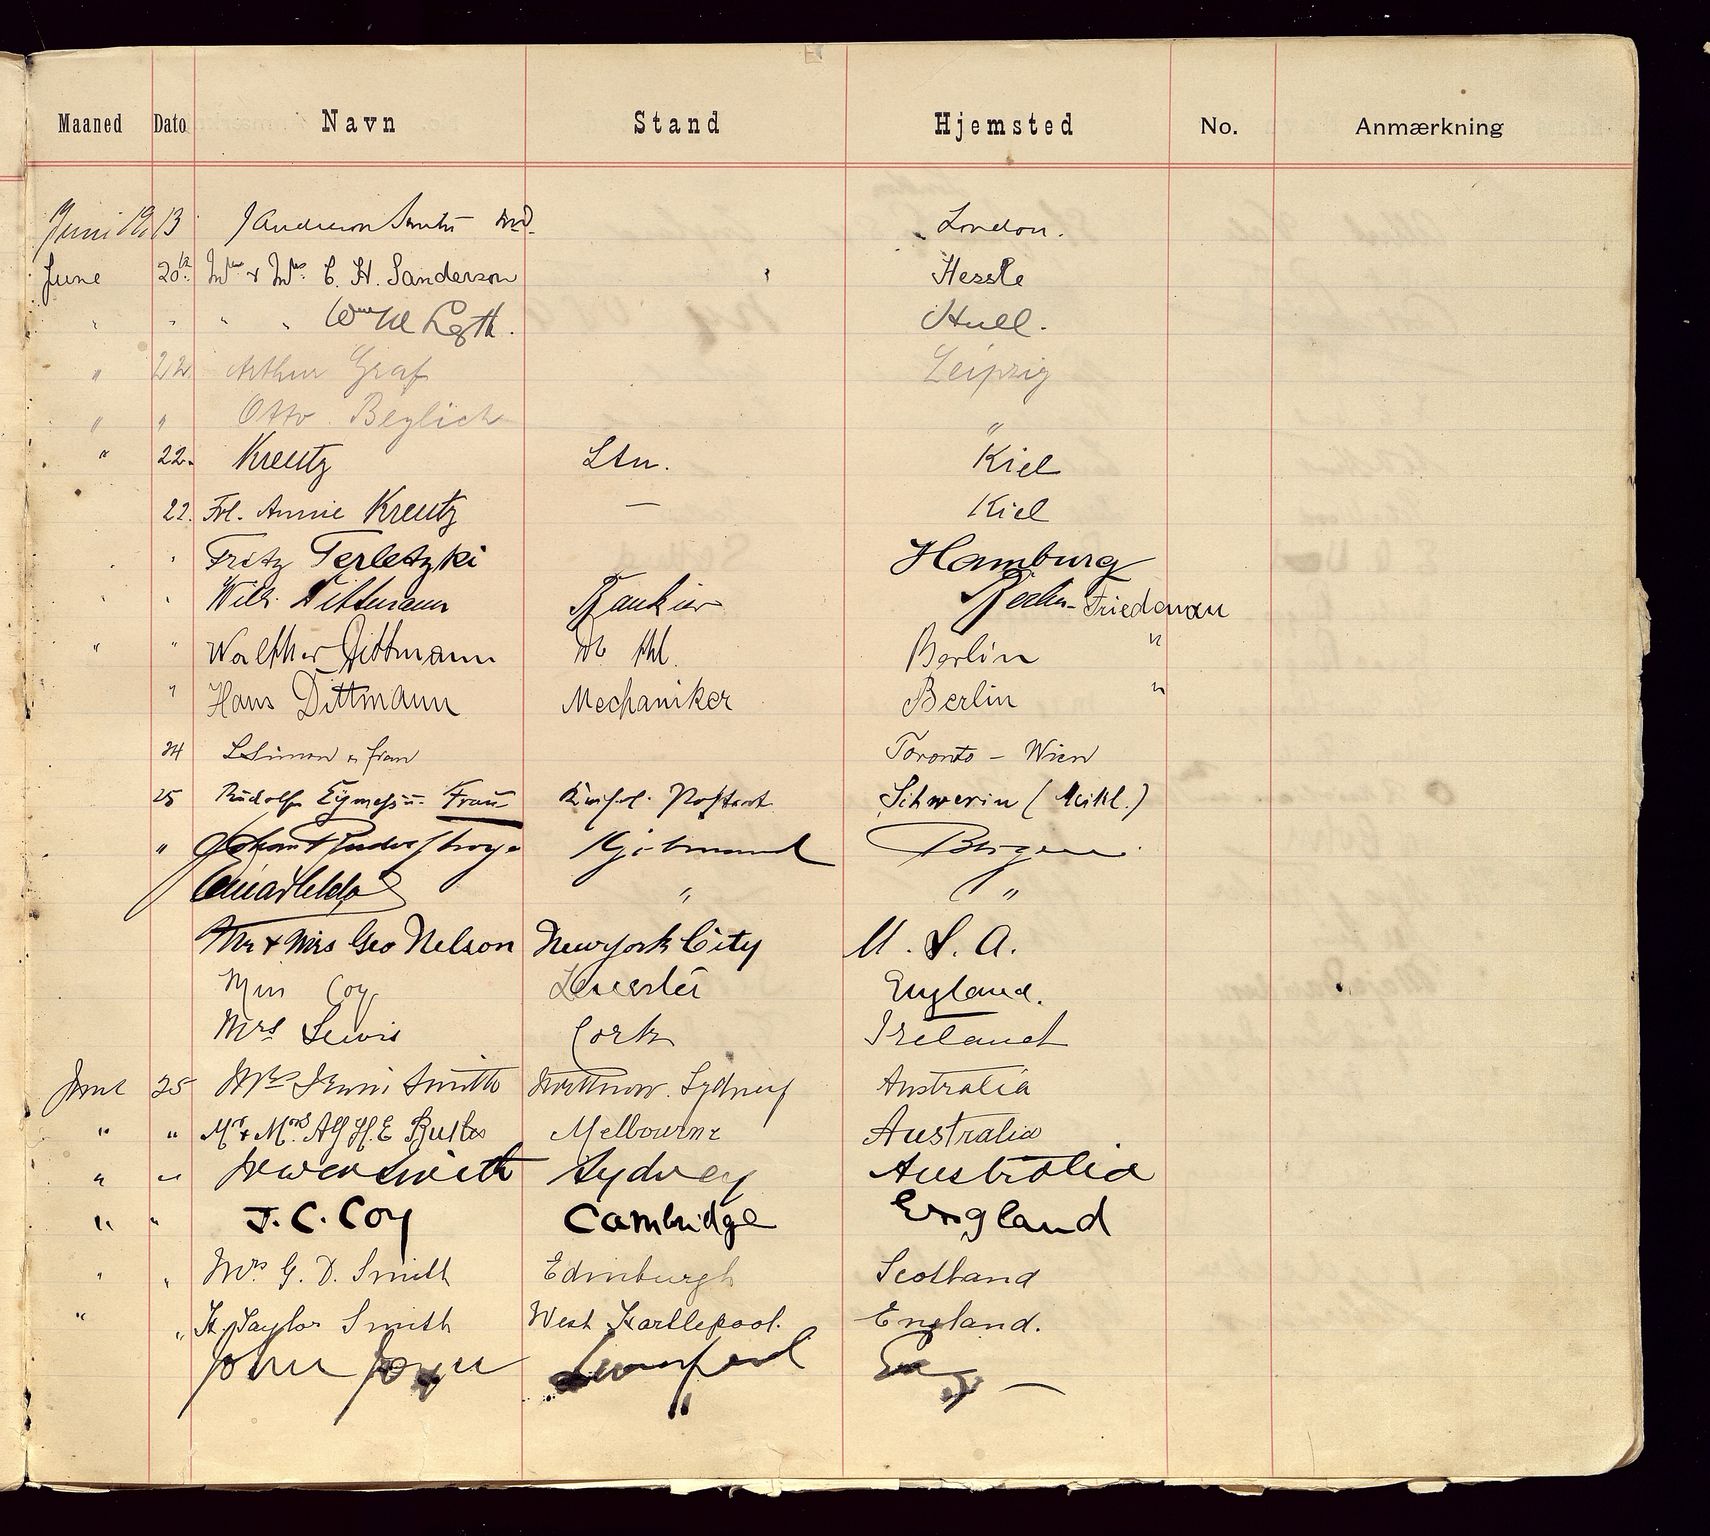 Maaned Dato Navn Stand Hjemsted No. Anmærkning
Juni 19 13 J Anderson Smith M.D. London.
June 20th Mr & Mrs C. H. Sanderson Hessle
" " " " Wm Hull.
" 22 Arthur Graf Leipzig
" " Otto Beylich "
" 22. Kreutz Ltn. Kiel
22. Frl. Annie Kreutz — Kiel
" Fritz Terletzki Hamburg
" " Wilh. Dittmann Bankier Berlin-Friedenau
" " Walther Dittmann Berlin "
" Hans Dittmann Mechaniker Berlin "
24 L Simon u frau Toronto – Wien
25 Rudolf u. Frau Schwerin (Meckl.)
" Kjøbmand Bergen
" "
Mr & Mrs Geo Nelson New York City U. S. A.
Miss Coy Leicester England.
Mrs Lewis Cork Ireland
June 25 Mrs Irwin Smith Sydney Australia
" " Mr & Mrs Alf H. E Butler Melbourne Australia
" " Smith Sydney Australia
" " J. C. Coy Cambridge England
" " Mrs G. D. Smith Edinburgh Scotland
" " H. Taylor Smith West Hartlepool. England.
John Eng —
"